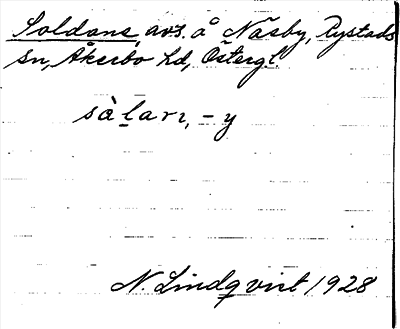 Soldans, avs. å Näsby, Rystads
sn, Åkerbo hd, Östergl.
sàları, -y
N. Lindqvist 1928